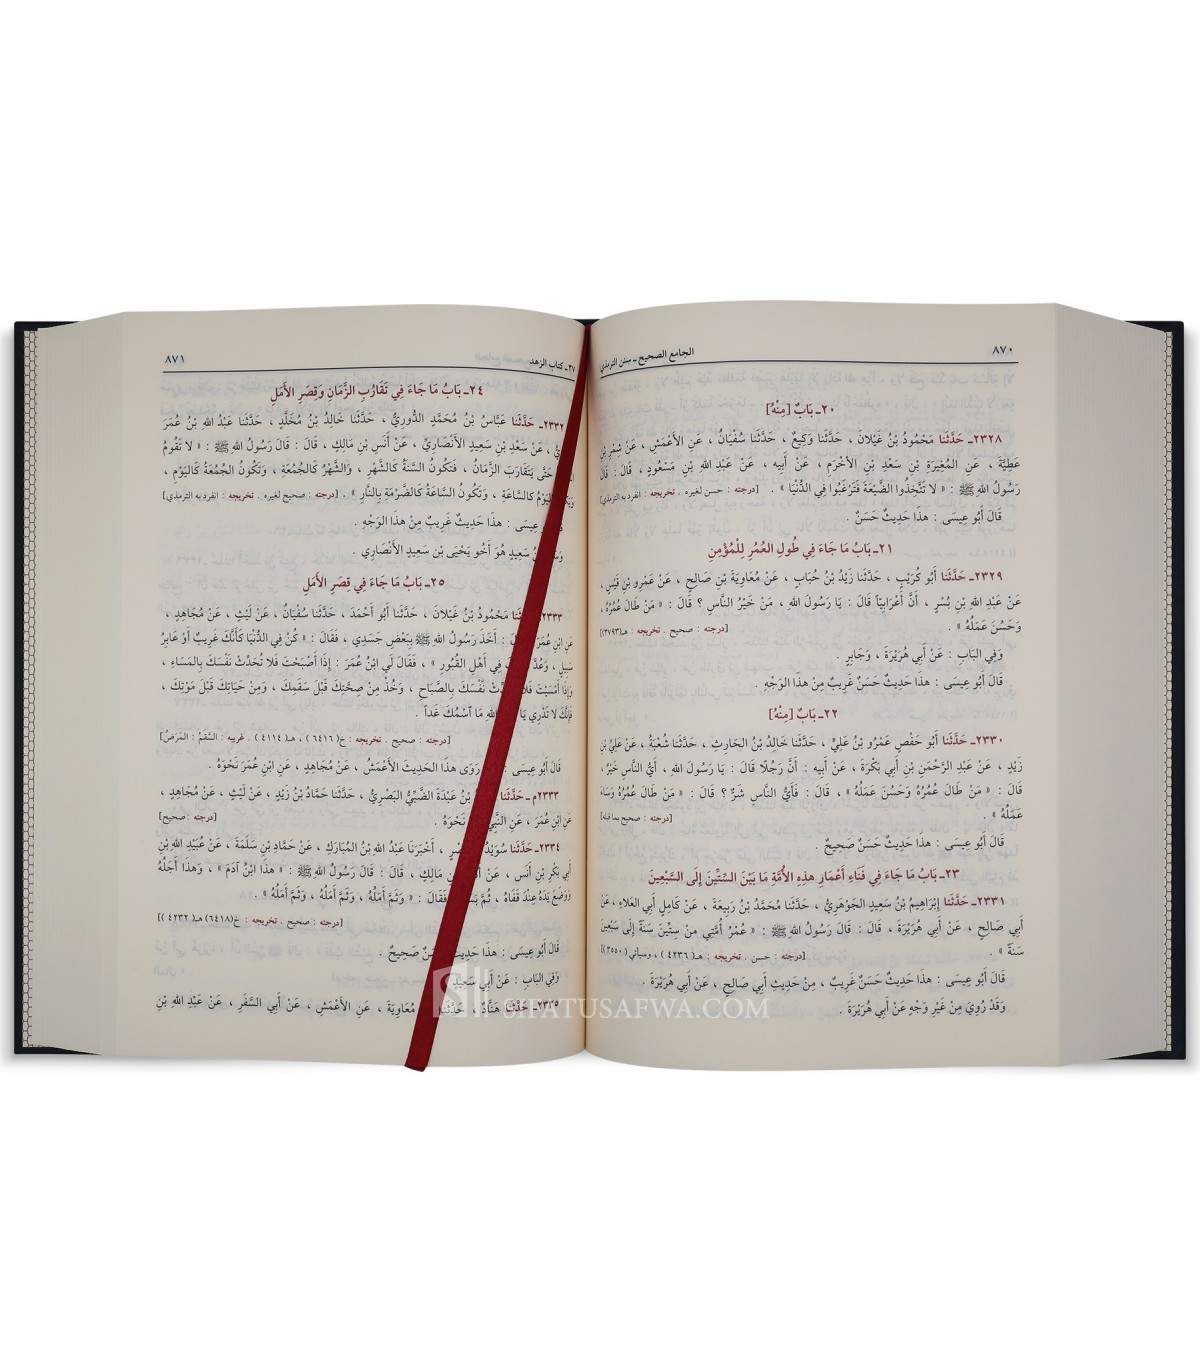 ٨٧٠
الجامع الصحيح ـ سنن الترمذي
٢٠ـ بَابٌ [مِنْهُ]
٢٣٢٨ـ حَدَّثَنَا مَحْمُودُ بْنُ غَيْلَانَ ، حَدَّثَنَا وَكِيعٌ ، حَدَّثَنَا سُفْيَانُ ، عَنِ الْأَعْمَشِ ، عَنْ شِمْرِ بْنِ
عَطِيَّةَ ، عَنِ الْمُغِيرَةِ بْنِ سَعْدِ بْنِ الْأَخْرَمِ ، عَنْ أَبِيهِ ، عَنْ عَبْدِ اللهِ بْنِ مَسْعُودٍ ، قَالَ : قَالَ
رَسُولُ اللهِ ﷺ : « لَا تَتَّخِذُوا الضَّيْعَةَ فَتَرْغَبُوا فِي الدُّنْيَا » . [درجته : حسن لغيره . تخريجه : انفرد به الترمذي]
قَالَ أَبُو عِيسَى : هذَا حَدِيثٌ حَسَنٌ .
٢١ـ بَابُ مَا جَاءَ فِي طُولِ الْعُمُرِ لِلْمُؤْمِنِ
٢٣٢٩ـ حَدَّثَنَا أَبُو كُرَيْبٍ ، حَدَّثَنَا زَيْدُ بْنُ حُبَابٍ ، عَنْ مُعَاوِيَةَ بْنِ صَالِحٍ ، عَنْ عَمْرِو بْنِ قَيْسٍ ،
عَنْ عَبْدِ اللهِ بْنِ بُسْرٍ ، أَنَّ أَعْرَابِيّاً قَالَ : يَا رَسُولَ اللهِ ، مَنْ خَيْرُ النَّاسِ ؟ قَالَ : « مَنْ طَالَ عُمُرُهُ ،
وَحَسُنَ عَمَلُهُ » . [درجته : صحيح . تخريجه : هـ(٣٧٩٣)]
وَفِي الْبَابِ : عَنْ أَبِي هُرَيْرَةَ ، وَجَابِرٍ .
قَالَ أَبُو عِيسَى : هذَا حَدِيثٌ حَسَنٌ غَرِيبٌ مِنْ هذَا الْوَجْهِ .
٢٢ـ بَابٌ [مِنْهُ]
٢٣٣٠ـ حَدَّثَنَا أَبُو حَفْصٍ عَمْرُو بْنُ عَلِيٍّ ، حَدَّثَنَا خَالِدُ بْنُ الْحَارِثِ ، حَدَّثَنَا شُعْبَةُ ، عَنْ عَلِيِّ بْنِ
زَيْدٍ ، عَنْ عَبْدِ الرَّحْمَنِ بْنِ أَبِي بَكْرَةَ ، عَنْ أَبِيهِ : أَنَّ رَجُلًا قَالَ : يَا رَسُولَ اللهِ ، أَيُّ النَّاسِ خَيْرٌ ،
قَالَ : « مَنْ طَالَ عُمُرُهُ وَحَسُنَ عَمَلُهُ » ، قَالَ : فَأَيُّ النَّاسِ شَرٌّ ؟ قَالَ : « مَنْ طَالَ عُمُرُهُ وَسَاءَ
عَمَلُهُ » . [درجته : صحيح بما قبله]
قَالَ أَبُو عِيسَى : هذَا حَدِيثٌ حَسَنٌ صَحِيحٌ .
٢٣ـ بَابُ مَا جَاءَ فِي فَنَاءِ أَعْمَارِ هذِهِ الْأُمَّةِ مَا بَيْنَ السِّتِّينَ إِلَى السَّبْعِينَ
٢٣٣١ـ حَدَّثَنَا إِبْرَاهِيمُ بْنُ سَعِيدٍ الْجَوْهَرِيُّ ، حَدَّثَنَا مُحَمَّدُ بْنُ رَبِيعَةَ ، عَنْ كَامِلٍ أَبِي الْعَلَاءِ ، عَنْ
أَبِي صَالِحٍ ، عَنْ أَبِي هُرَيْرَةَ ، قَالَ : قَالَ رَسُولُ اللهِ ﷺ : « عُمُرُ أُمَّتِي مِنْ سِتِّينَ سَنَةً إِلَى سَبْعِينَ
سَنَةً » . [درجته : حسن . تخريجه : هـ(٤٢٣٦) ، وسيأتي (٣٥٥٠)]
قَالَ أَبُو عِيسَى : هذَا حَدِيثٌ حَسَنٌ غَرِيبٌ ، مِنْ حَدِيثِ أَبِي صَالِحٍ ، عَنْ أَبِي هُرَيْرَةَ .
وَقَدْ رُوِيَ مِنْ غَيْرِ وَجْهٍ عَنْ أَبِي هُرَيْرَةَ .
٣٧ـ كتاب الزهد
٨٧١
٢٤ـ بَابُ مَا جَاءَ فِي تَقَارُبِ الزَّمَانِ وَقِصَرِ الْأَمَلِ
٢٣٣٢ـ حَدَّثَنَا عَبَّاسُ بْنُ مُحَمَّدٍ الدُّورِيُّ ، حَدَّثَنَا خَالِدُ بْنُ مُخَلَّدٍ ، حَدَّثَنَا عَبْدُ اللهِ بْنُ عُمَرَ
، عَنْ سَعْدِ بْنِ سَعِيدٍ الْأَنْصَارِيِّ ، عَنْ أَنَسِ بْنِ مَالِكٍ ، قَالَ : قَالَ رَسُولُ اللهِ ﷺ : « لَا تَقُومُ
حَتَّى يَتَقَارَبَ الزَّمَانُ ، فَتَكُونُ السَّنَةُ كَالشَّهْرِ ، وَالشَّهْرُ كَالْجُمُعَةِ ، وَتَكُونُ الْجُمُعَةُ كَالْيَوْمِ ،
الْيَوْمُ كَالسَّاعَةِ ، وَتَكُونُ السَّاعَةُ كَالضَّرْمَةِ بِالنَّارِ » . [درجته : صحيح لغيره . تخريجه : انفرد به الترمذي]
عِيسَى : هذَا حَدِيثٌ غَرِيبٌ مِنْ هذَا الْوَجْهِ .
سَعِيدٍ هُوَ أَخُو يَحْيَى بْنِ سَعِيدٍ الْأَنْصَارِي .
٢٥ـ بَابُ مَا جَاءَ فِي قِصَرِ الْأَمَلِ
٢٣٣٣ـ مَحْمُودُ بْنُ غَيْلَانَ ، حَدَّثَنَا أَبُو أَحْمَدَ ، حَدَّثَنَا سُفْيَانُ ، عَنْ لَيْثٍ ، عَنْ مُجَاهِدٍ ،
عَنِ ابْنِ عُمَرَ : أَخَذَ رَسُولُ اللهِ ﷺ بِبَعْضِ جَسَدِي ، فَقَالَ : « كُنْ فِي الدُّنْيَا كَأَنَّكَ غَرِيبٌ أَوْ عَابِرُ
سَبِيلٍ ، وَعُدَّ فِي أَهْلِ الْقُبُورِ » ، فَقَالَ لِي ابْنُ عُمَرَ : إِذَا أَصْبَحْتَ فَلَا تُحَدِّثْ نَفْسَكَ بِالْمَسَاءِ ،
وَإِذَا أَمْسَيْتَ فَلَا نَفْسَكَ بِالصَّبَاحِ ، وَخُذْ مِنْ صِحَّتِكَ قَبْلَ سَقَمِكَ ، وَمِنْ حَيَاتِكَ قَبْلَ مَوْتِكَ ،
فَإِنَّكَ لَا تَدْرِي يَا اللهِ مَا ٱسْمُكَ غَداً .
[درجته : صحيح . تخريجه : خ(٦٤١٦) ، هـ(٤١١٤) . غريبه : السَّقَمُ : المَرَضُ]
قَالَ أَبُو عِيسَى : رَوَى هذَا الْحَدِيثَ الْأَعْمَشُ ، عَنْ مُجَاهِدٍ ، عَنِ ابْنِ عُمَرَ نَحْوَهُ .
٢٣٣٣م ـ حَدَّثَنَا بْنُ عَبْدَةَ الضَّبِّيُّ الْبَصْرِيُّ ، حَدَّثَنَا حَمَّادُ بْنُ زَيْدٍ ، عَنْ لَيْثٍ ، عَنْ مُجَاهِدٍ ،
عَنِ ابْنِ عُمَرَ ، عَنِ النَّبِيِّ نَحْوَهُ . [درجته : صحيح]
٢٣٣٤ـ حَدَّثَنَا سُوَيْدُ ، أَخْبَرَنَا عَبْدُ اللهِ بْنُ الْمُبَارَكِ ، عَنْ حَمَّادِ بْنِ سَلَمَةَ ، عَنْ عُبَيْدِ اللهِ بْنِ
أَبِي بَكْرِ بْنِ أَنَسٍ ، عَنْ مَالِكٍ ، قَالَ : قَالَ رَسُولُ اللهِ ﷺ : « هذَا ابْنُ آدَمَ » ، وَهذَا أَجَلُهُ
وَوَضَعَ يَدَهُ عِنْدَ قَفَاهُ ، ثُمَّ فَقَالَ : « وَثَمَّ أَمَلُهُ ، وَثَمَّ أَمَلُهُ ، وَثَمَّ أَمَلُهُ » .
[درجته : صحيح . تخريجه : خ(٦٤١٨) هـ(٤٢٣٢)]
قَالَ أَبُو عِيسَى : هذَا حَدِيثٌ حَسَنٌ صَحِيحٌ .
وَفِي الْبَابِ : عَنْ أَبِي سَعِيدٍ
٢٣٣٥ـ حَدَّثَنَا هَنَّادٌ ، حَدَّثَنَا مُعَاوِيَةَ ، عَنِ الْأَعْمَشِ ، عَنْ أَبِي السَّفَرِ ، عَنْ عَبْدِ اللهِ بْنِ
SIFATUSAFWA.COM